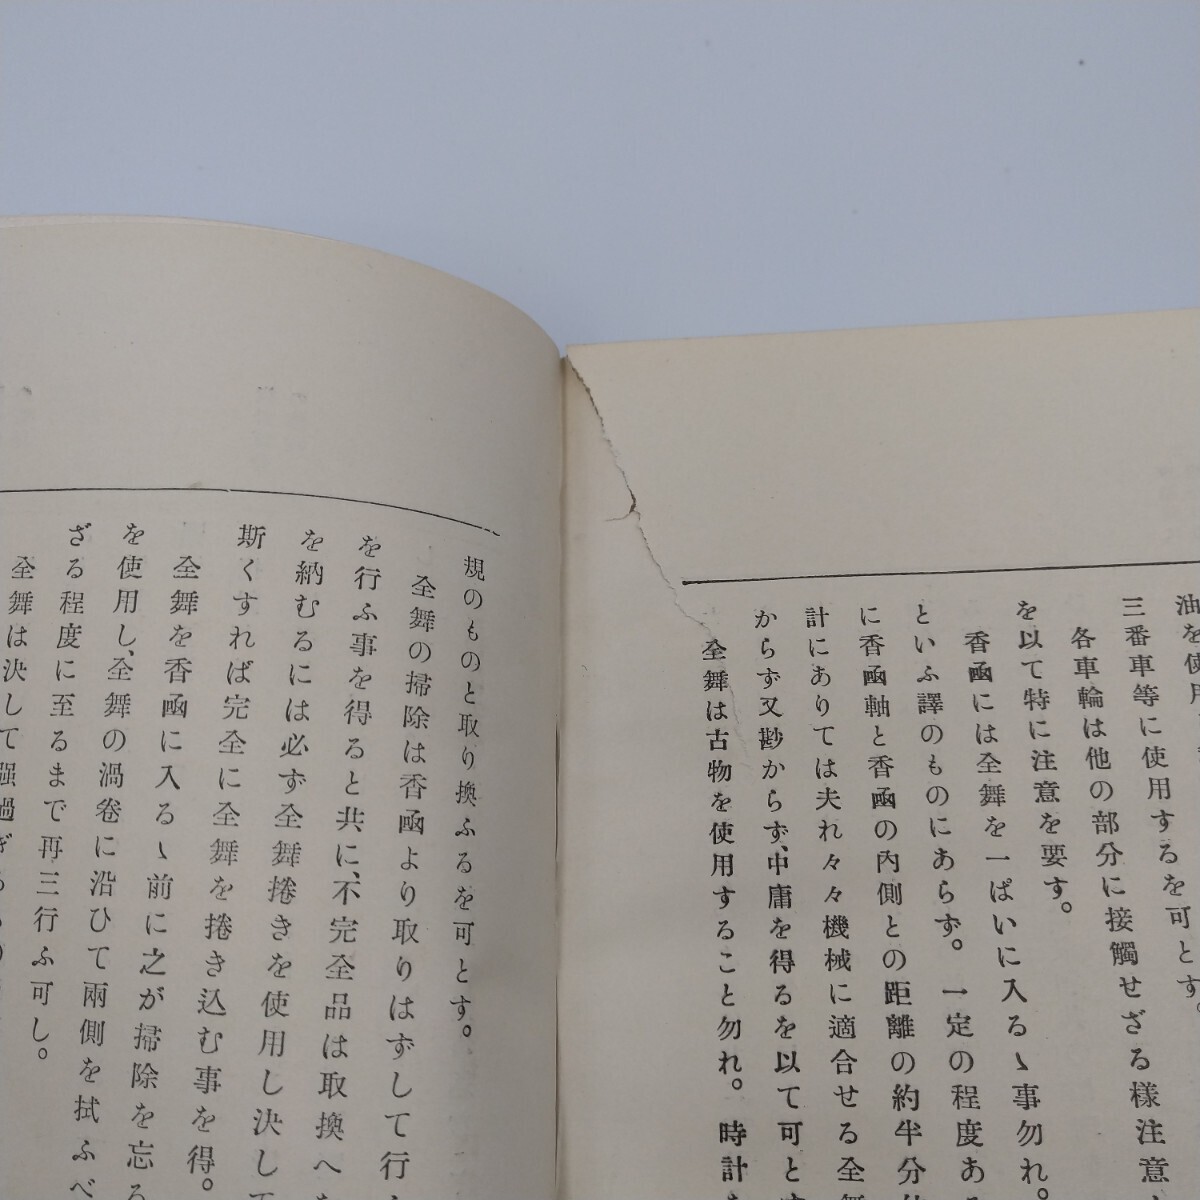 油を使用
三番車等に使用するを可とす。
各車輪は他の部分に接觸せざる樣注意
を以て特に注意を要す。
香凾には全舞を一ぱいに入るゝ事勿れ。
といふ譯のものにあらず。一定の程度あ
に香凾軸と香凾の內側との距離の約半分
計にありては夫れ々々機械に適合せる全舞
からず又尠からず、中庸を得るを以て可とす
全舞は古物を使用すること勿れ。時計
規のものと取り換ふるを可とす。
全舞の掃除は香凾より取りはずして行
を行ふ事を得ると共に、不完全品は取換へ
を納むるには必ず全舞捲きを使用し決して
斯くすれば完全に全舞を捲き込む事を得。
全舞を香凾に入るゝ前に之が掃除を忘る
を使用し、全舞の渦卷に沿ひて兩側を拭ふべ
ざる程度に至るまで再三行ふ可し。
全舞は決して强過ぎ